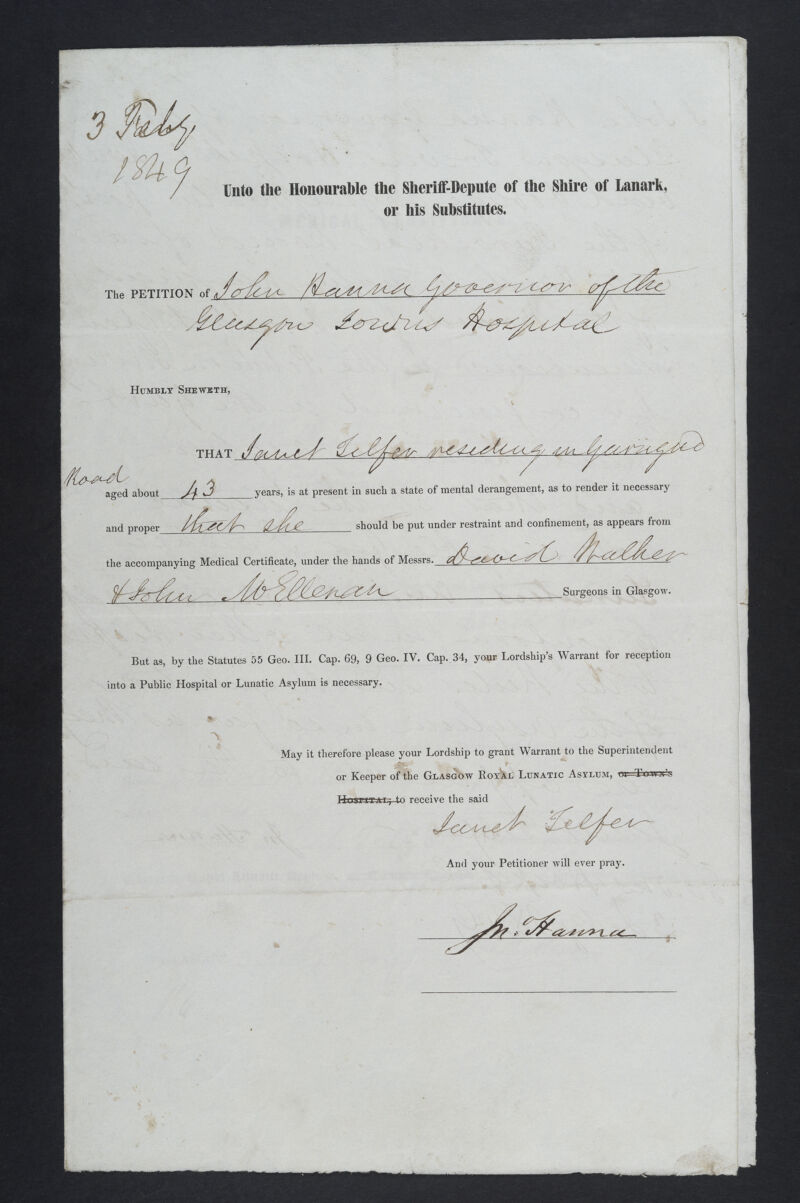 3 Feby
1849
Unto the Honourable the Sheriff-Depute of the Shire of Lanark,
or his Substitutes.
The PETITION of John Hanna Governor of the
Glasgow Towns Hospital
HUMBLY SHEWETH,
THAT Janet Telfer residing in Garngad
Road
aged about 43 years, is at present in such a state of mental derangement, as to render it necessary
and proper that she should be put under restraint and confinement, as appears from
the accompanying Medical Certificate, under the hands of Messrs. David Walker
& John McElleran Surgeons in Glasgow.
But as, by the Statutes 55 Geo. III. Cap. 69, 9 Geo. IV. Cap. 34, your Lordship's Warrant for reception
into a Public Hospital or Lunatic Asylum is necessary.
May it therefore please your Lordship to grant Warrant to the Superintendent
or Keeper of the GLASGOW ROYAL LUNATIC ASYLUM, or TOWN'S
HOSPITAL, to receive the said
Janet Telfer
And your Petitioner will ever pray.
Jno. Hanna